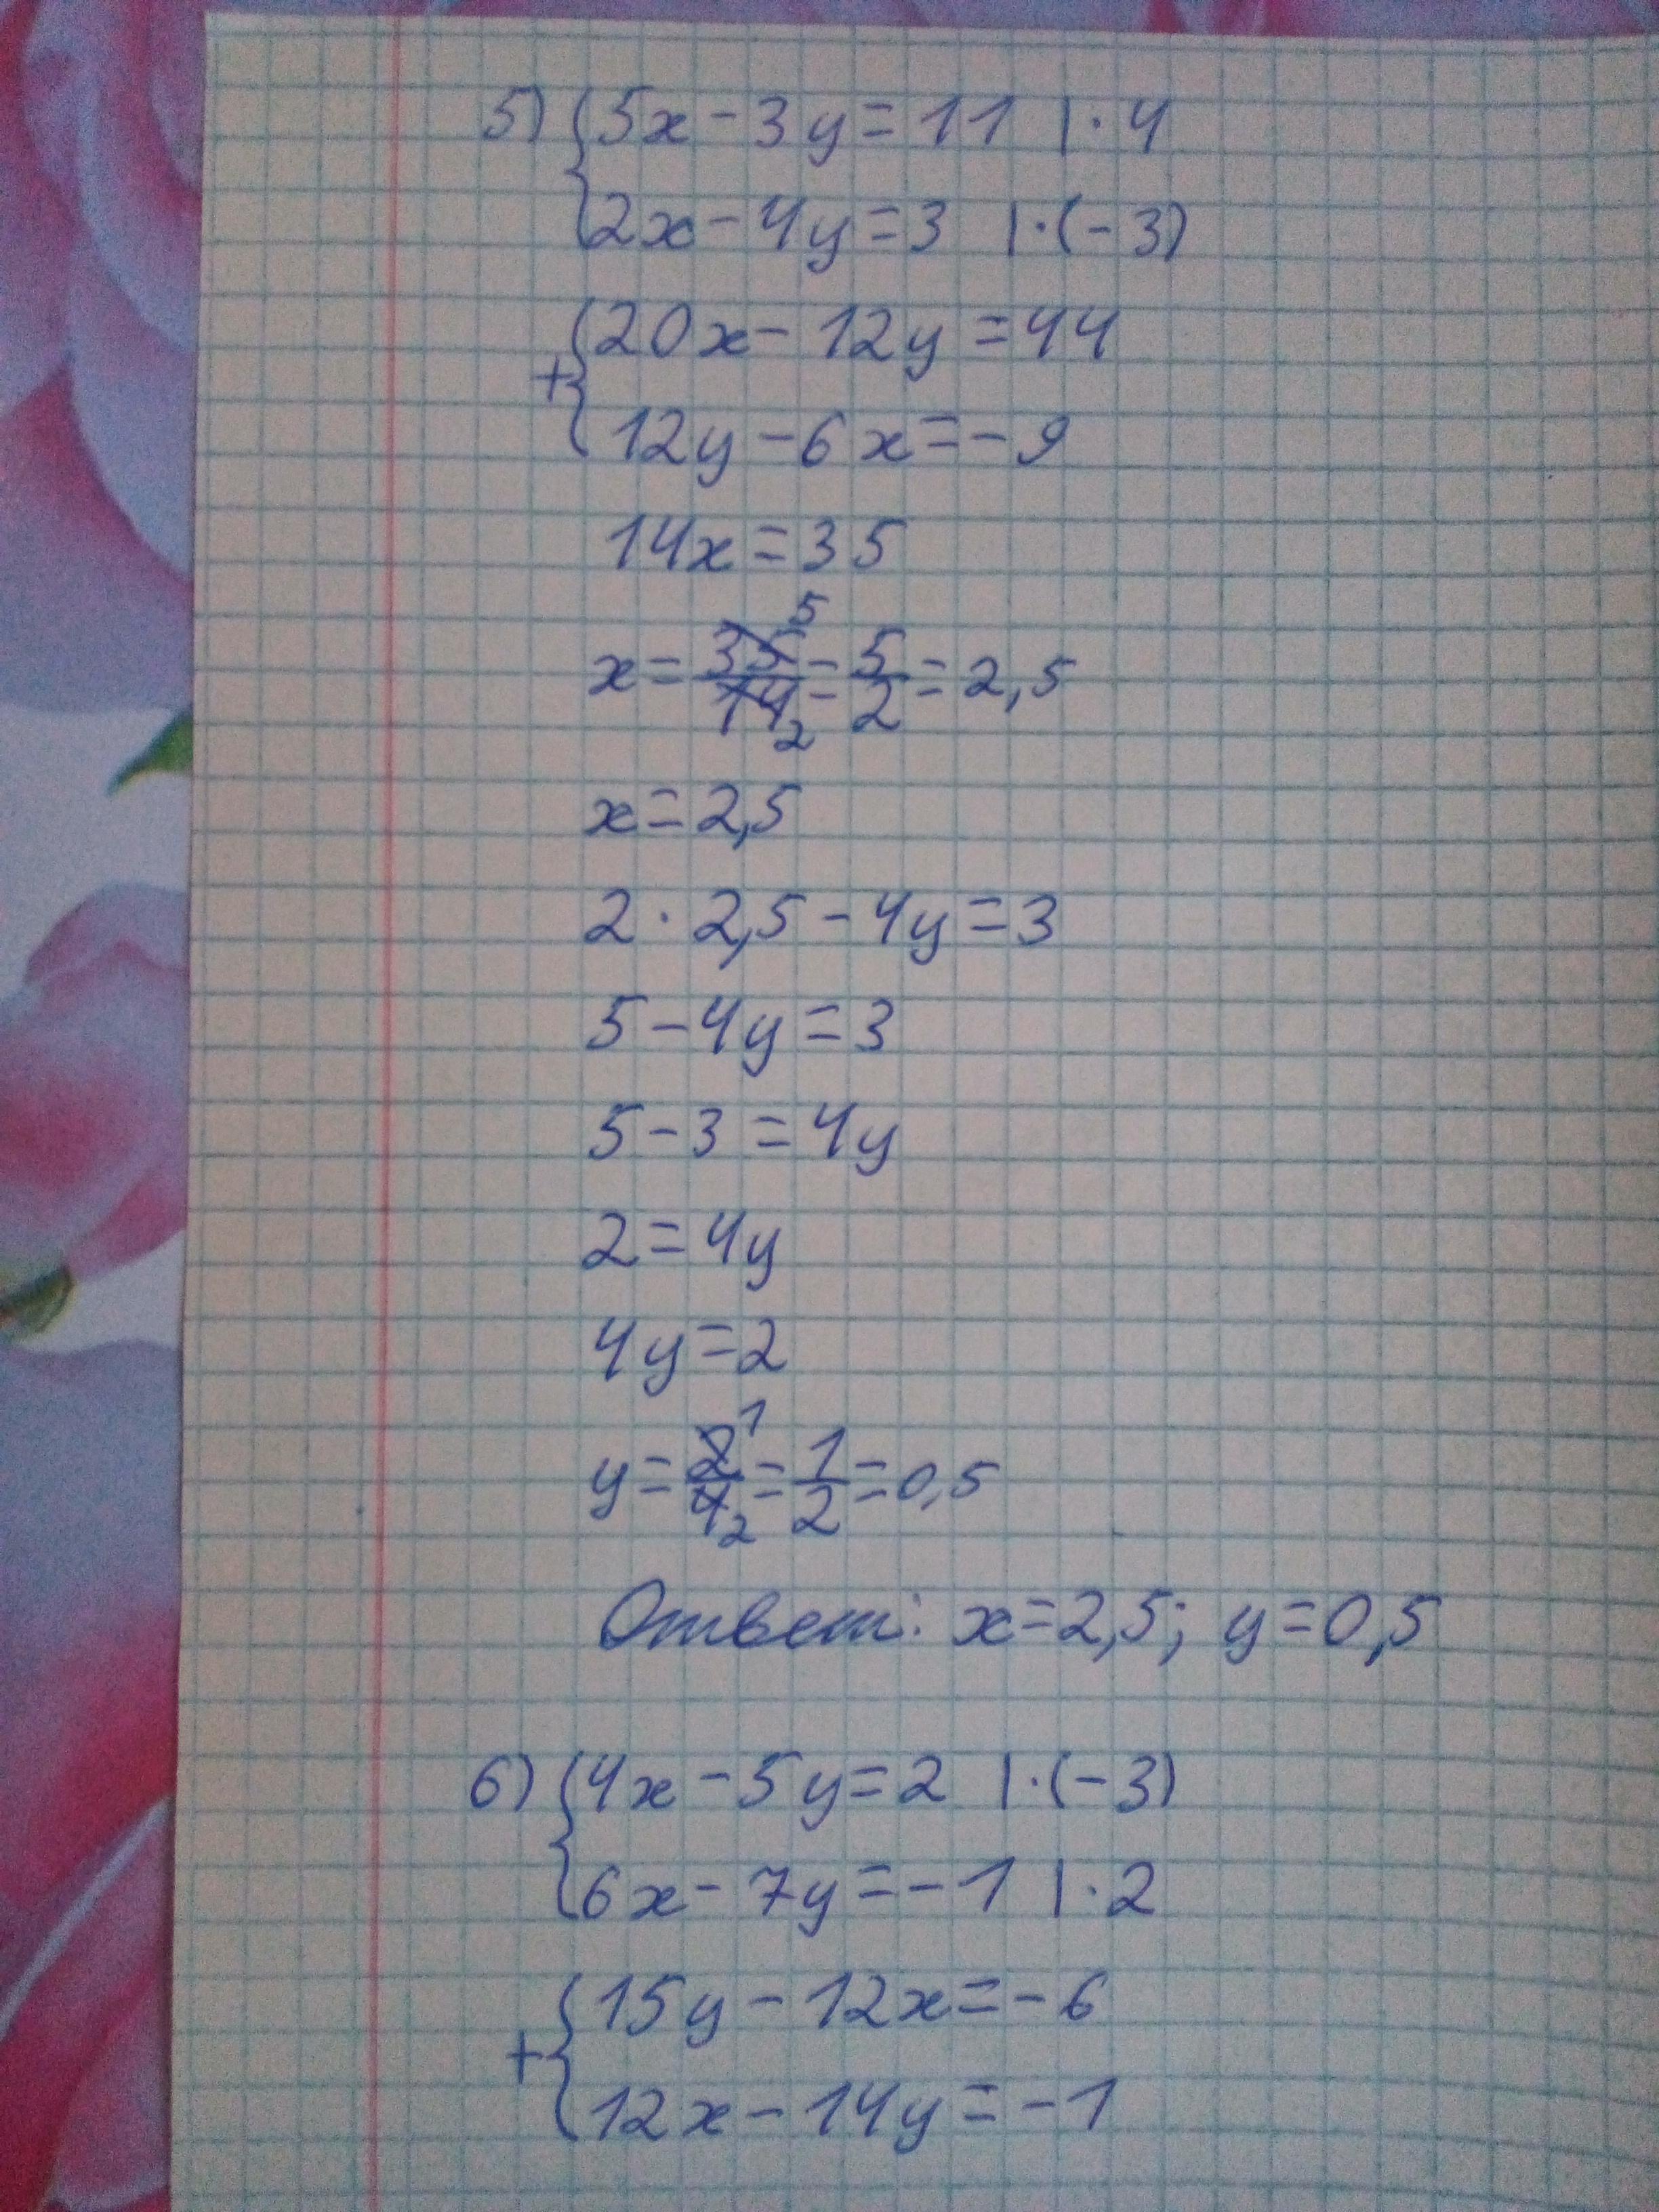 5) {5x - 3y = 11 | · 4
{2x - 4y = 3 | · (-3)
+ {20x - 12y = 44
{12y - 6x = -9
14x = 35
x = 35/14 = 5/2 = 2,5
5
2
x = 2,5
2 · 2,5 - 4y = 3
5 - 4y = 3
5 - 3 = 4y
2 = 4y
4y = 2
y = 2/4 = 1/2 = 0,5
1
2
Ответ: x = 2,5; y = 0,5
6) {4x - 5y = 2 | · (-3)
{6x - 7y = -1 | · 2
+ {15y - 12x = -6
{12x - 14y = -1